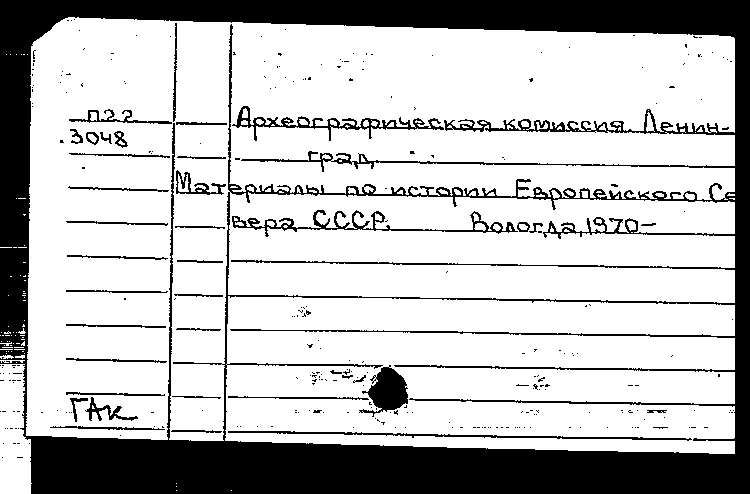 П22 Археографическая комиссия. Ленин-
3048
град.
Материалы по истории Европейского Се
вера СССР. Вологда, 1970-
ГАК